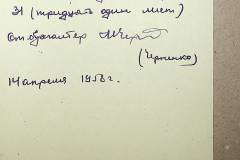 31 (тридцать один лист)
Ст бухгалтер
(Черненко)
14 апреля 1958 г.